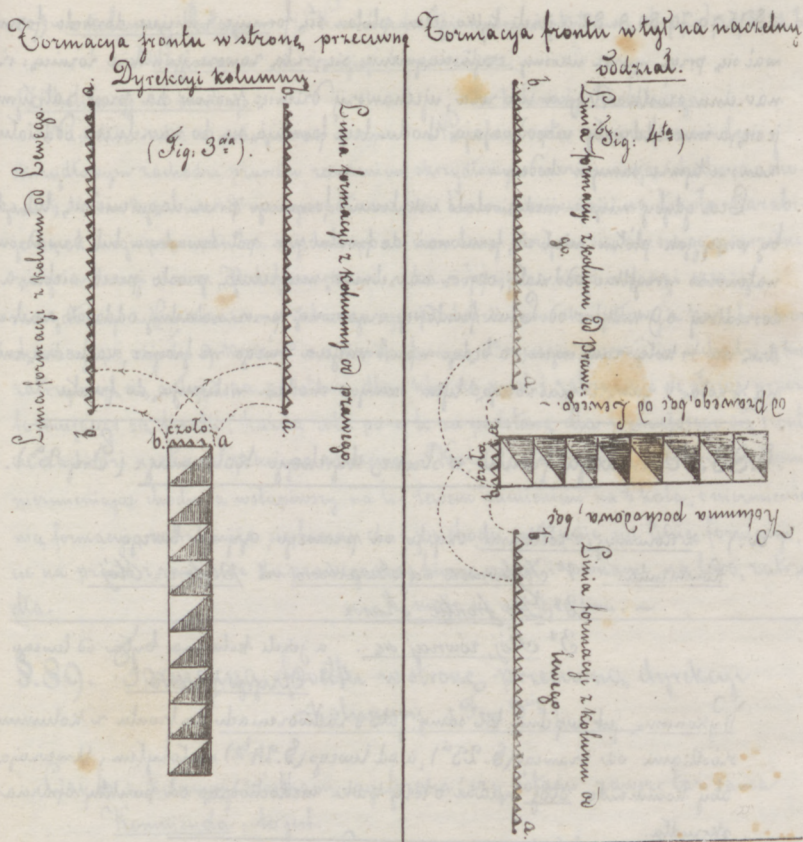 Formacyja frontu w stronę przeciwną
Dyrekcyi kolumny.
a.
b.
(Fig: 3cia).
Linia formacyi z kolumn od Lewego.
Linia formacyi z kolumny od prawego
b.
a.
czoło
b a
Formacyja frontu w tył na naczelny
oddział.
b.
(Fig: 4ta)
Linia formacyi z kolumn od prawe-
go.
a.
czoło
Kolumna pochodowa, bąć
od Prawego, bąć od Lewego.
b.
Linia formacyi z kolumn od
lewego.
a.